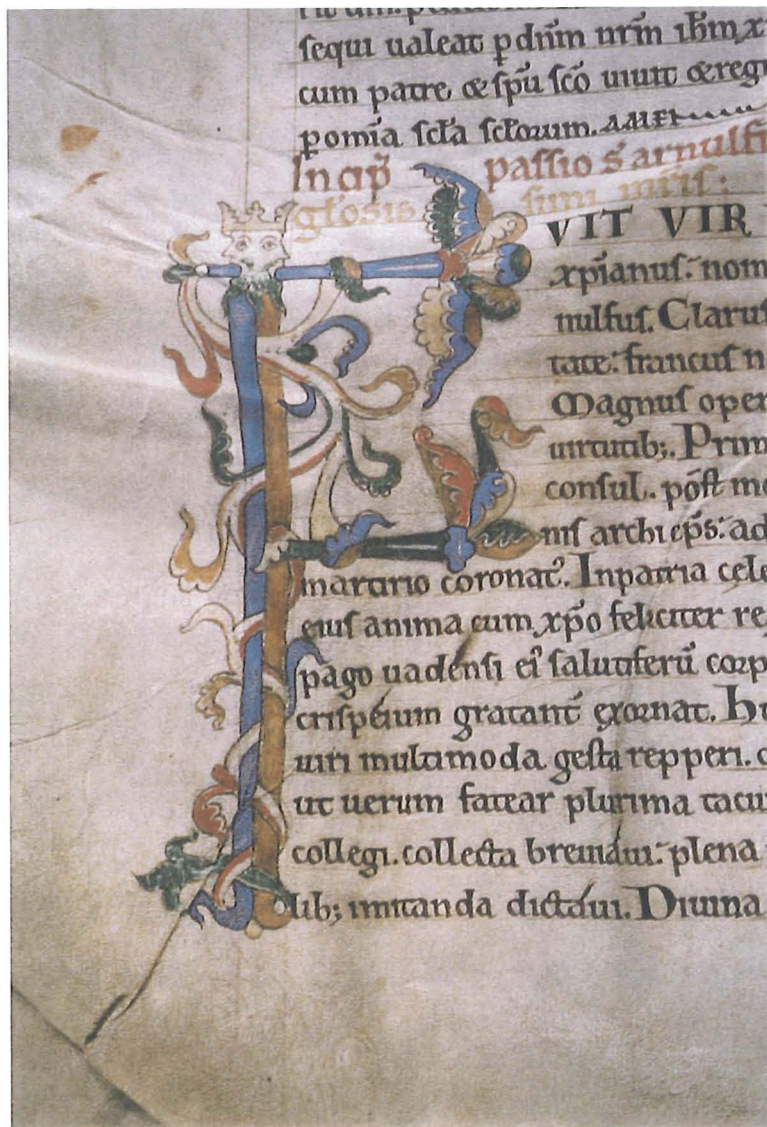 sequi ualeat p̱ dn̄m nr̄m ih̄m x
cum patre & sp̄u sc̄o uiuit & regn
p̱ om̄ia sc̄l̄a sc̄l̄orum. AMEN
Incip̄ passio s̄ arnulfi
glosis simi mr̄is:
F VIT VIR
xp̄ianus: nom
nulfus. Clarus
tate: francus n
Magnus oper
uirtutib;. Prim
consul. pōst mo
nis archiep̄s: ad
martirio coronat᷒. In patria cele
eius anima cum xp̄o feliciter re
pago uadensi ei᷒ salutiferū corp
crispeium gratant̄ exornat. Hu
uiri multimoda gesta repperi.
ut uerum fatear plurima tacui
collegi. collecta breuiaui: plena
lib; imitanda dictaui. Diuina